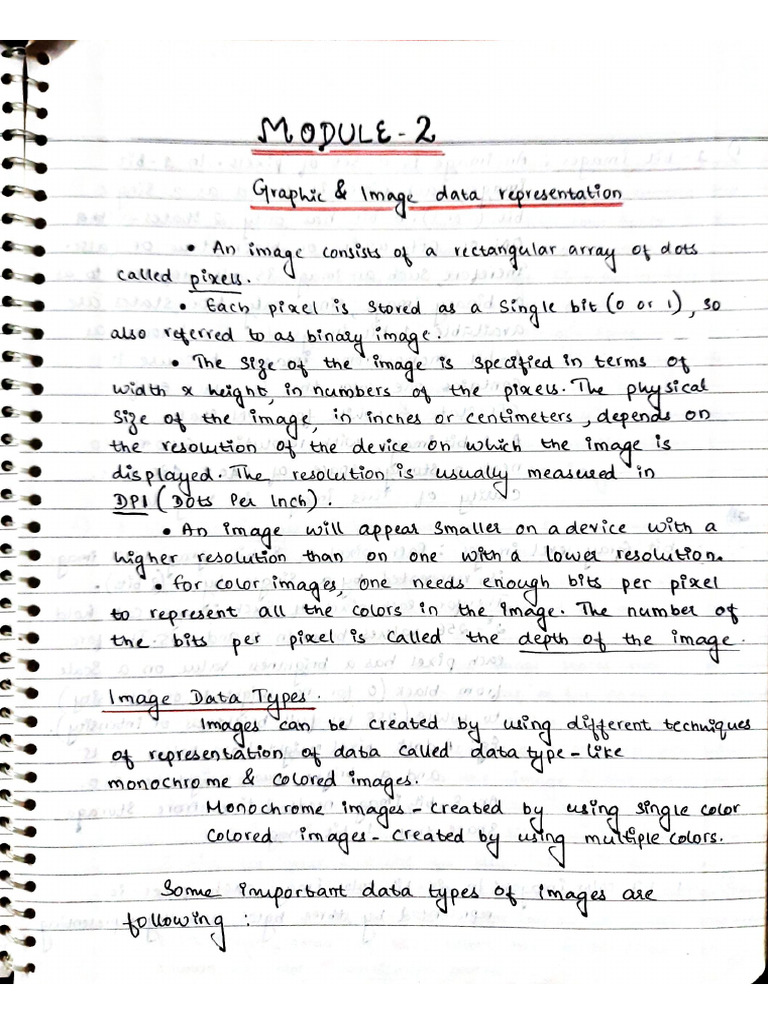 MODULE-2
Graphic & Image data representation
• An image consists of a rectangular array of dots
called pixels.
• Each pixel is stored as a single bit (0 or 1), so
also referred to as binary image.
• The size of the image is specified in terms of
width x height, in numbers of the pixels. The physical
size of the image, in inches or centimeters, depends on
the resolution of the device on which the image is
displayed. The resolution is usually measured in
DPI (Dots Per Inch).
• An image will appear smaller on a device with a
higher resolution than on one with a lower resolution.
• for color images, one needs enough bits per pixel
to represent all the colors in the image. The number of
the bits per pixel is called the depth of the image.
Image Data Types.
Images can be created by using different techniques
of representation of data called data type - like
monochrome & colored images.
Monochrome images - created by using single color
colored images - created by using multiple colors.
Some important data types of images are
following :